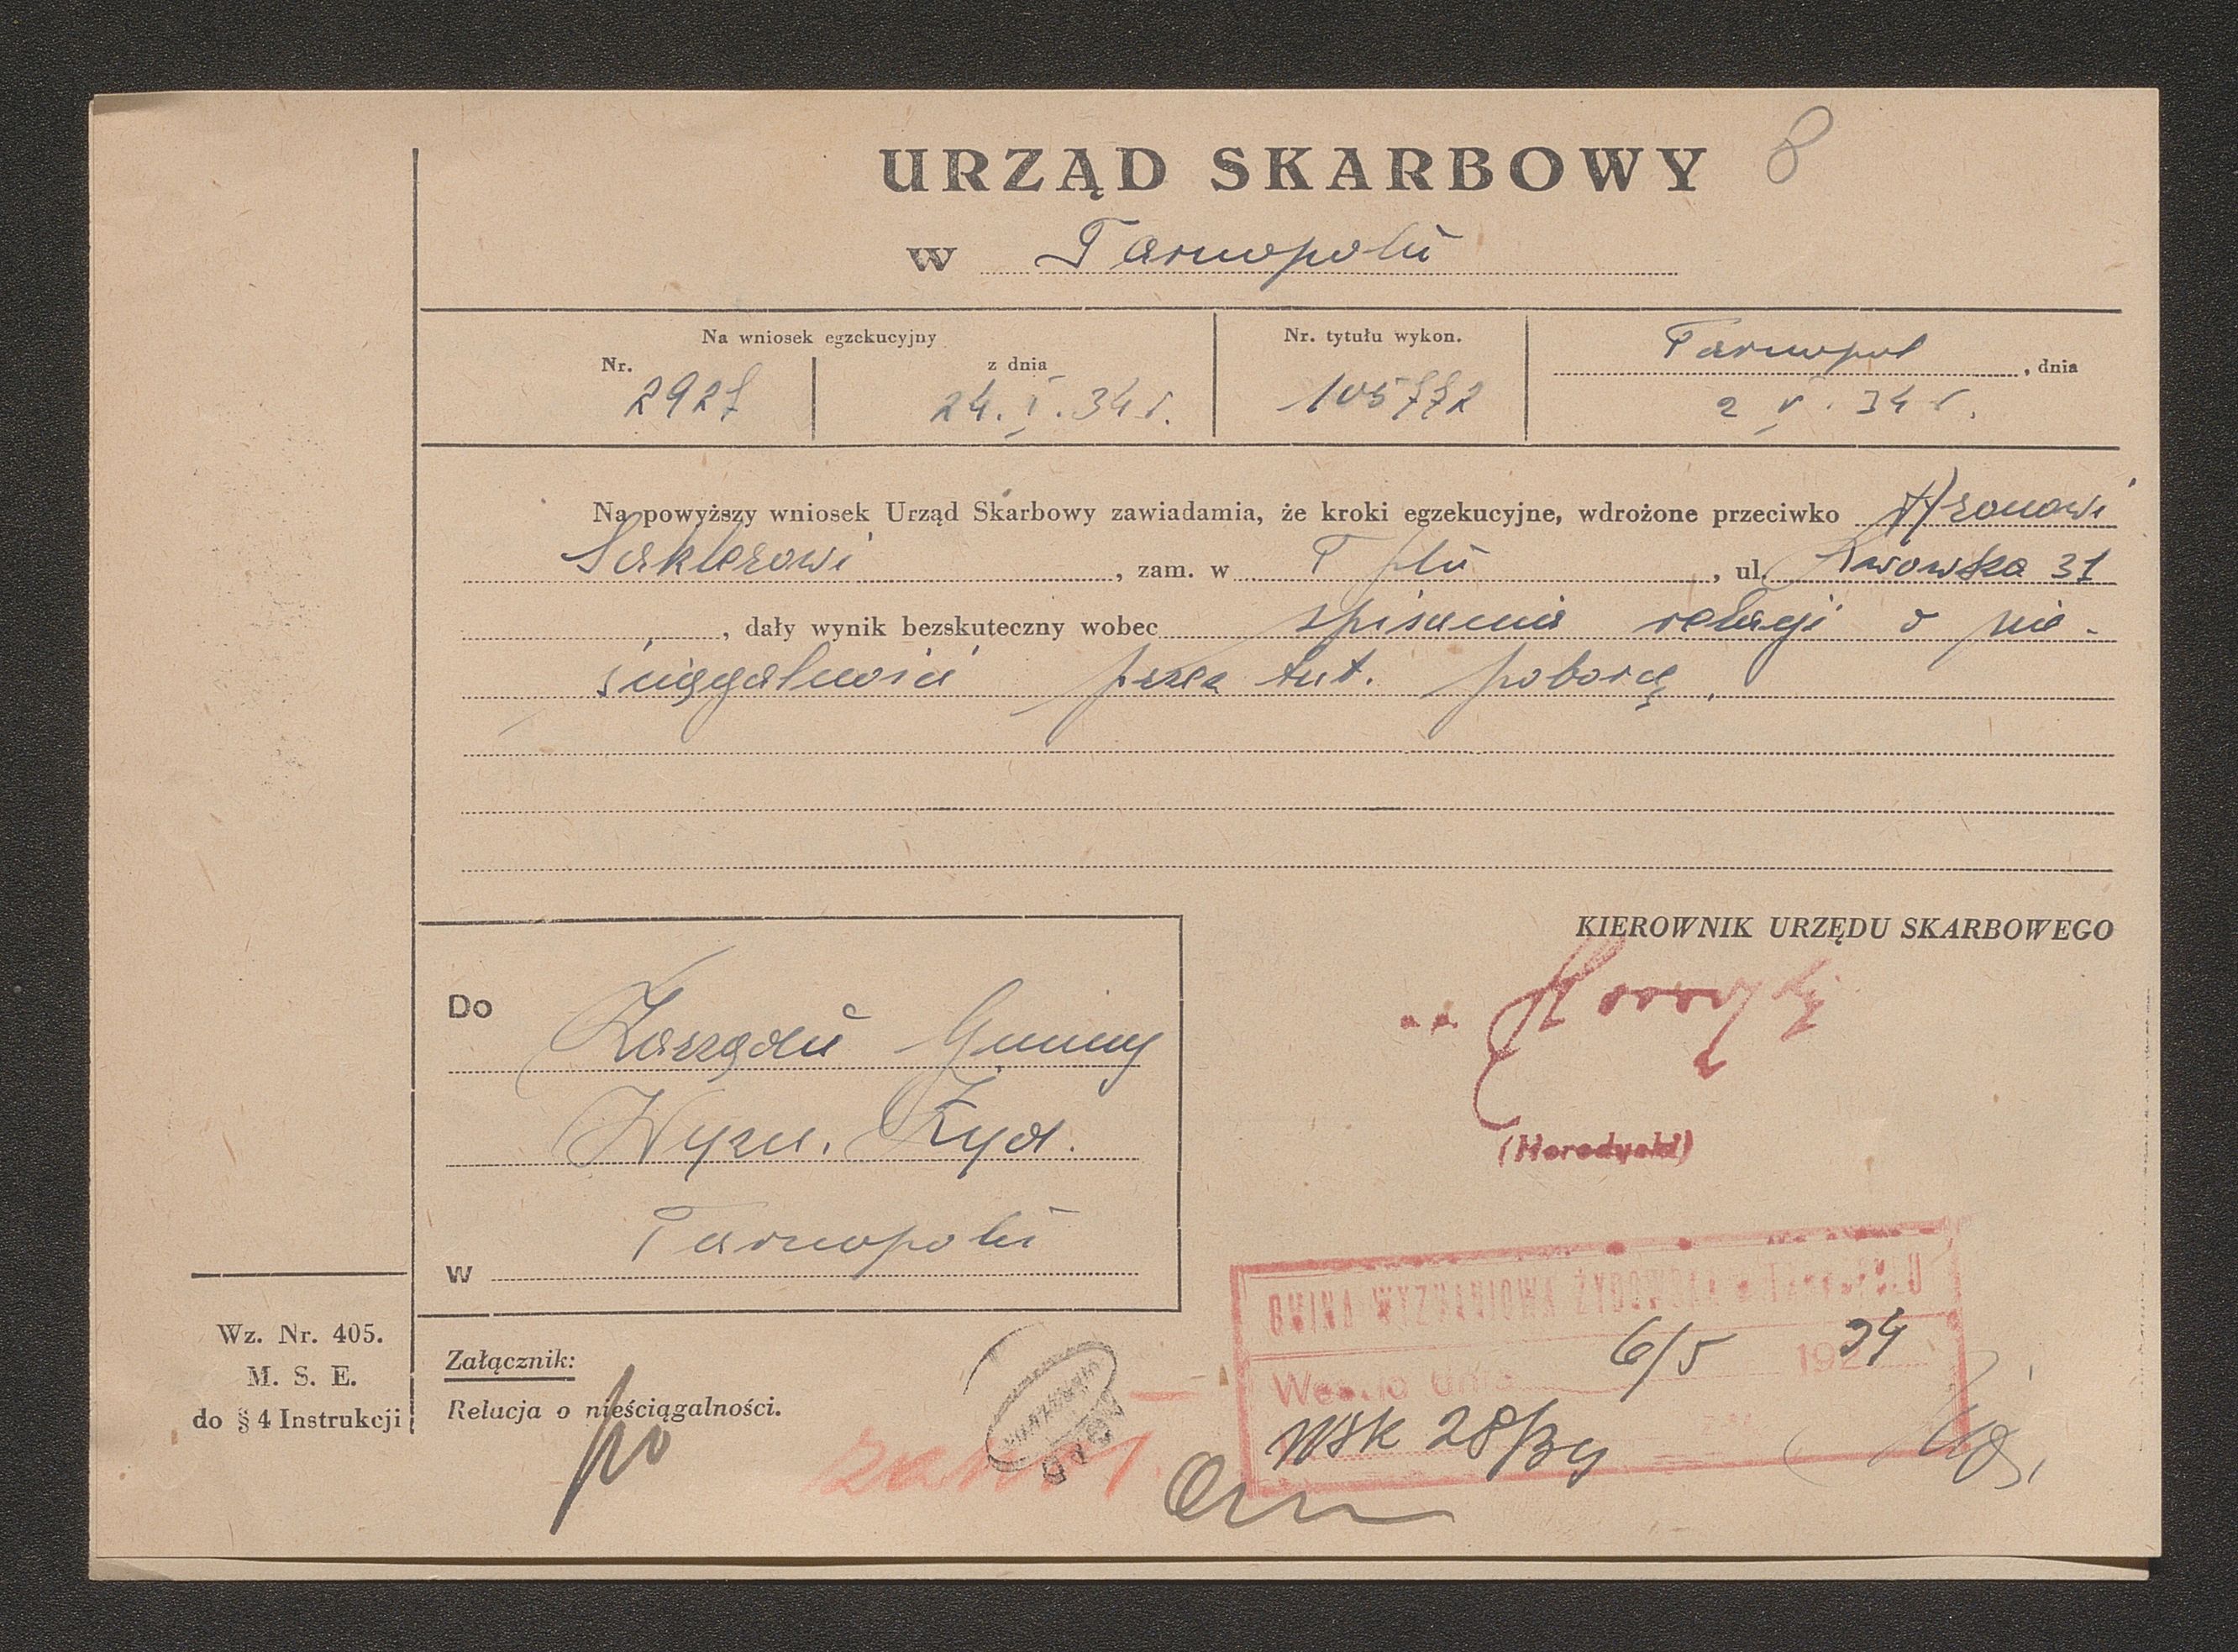 8
URZĄD SKARBOWY
w Tarnopolu
Na wniosek egzekucyjny
Nr. z dnia Nr. tytułu wykon. Tarnopol, dnia
2927 24.I.34 r. 105772 2 V. 34 r.
Na powyższy wniosek Urząd Skarbowy zawiadamia, że kroki egzekucyjne, wdrożone przeciwko Aronowi
Saklerowi, zam. w T plu, ul. Lwowska 31
, dały wynik bezskuteczny wobec spisania relacji o nie-
ściągalności przez tut. poborcę.
KIEROWNIK URZĘDU SKARBOWEGO
Do Zarządu Gminy
Wyzn. Żyd.
w Tarnopolu
(Horodyski)
GMINA WYZNANIOWA ŻYDOWSKA w TARNOPOLU
Weszło dnia 6/5 192 34
Wz. Nr. 405.
M. S. E.
do § 4 Instrukcji
Załącznik:
Relacja o nieściągalności.
28